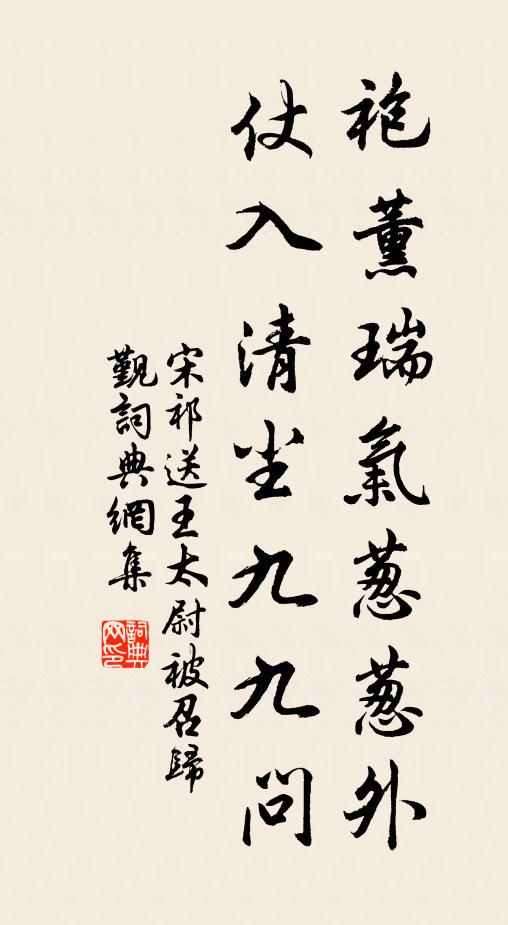 袍薰瑞氣葱葱外
仗入清尘九九问
宋祁送王太尉被召歸
覲詞典網集
詞典
网印